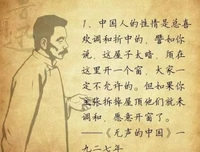 1、中国人的性情是总喜
欢调和折中的，譬如你
说，这屋子太暗，须在
这里开一个窗，大家一
定不允许的。但如果你
主张拆掉屋顶他们就来
调和，愿意开窗了。
——《无声的中国》一
九二七年